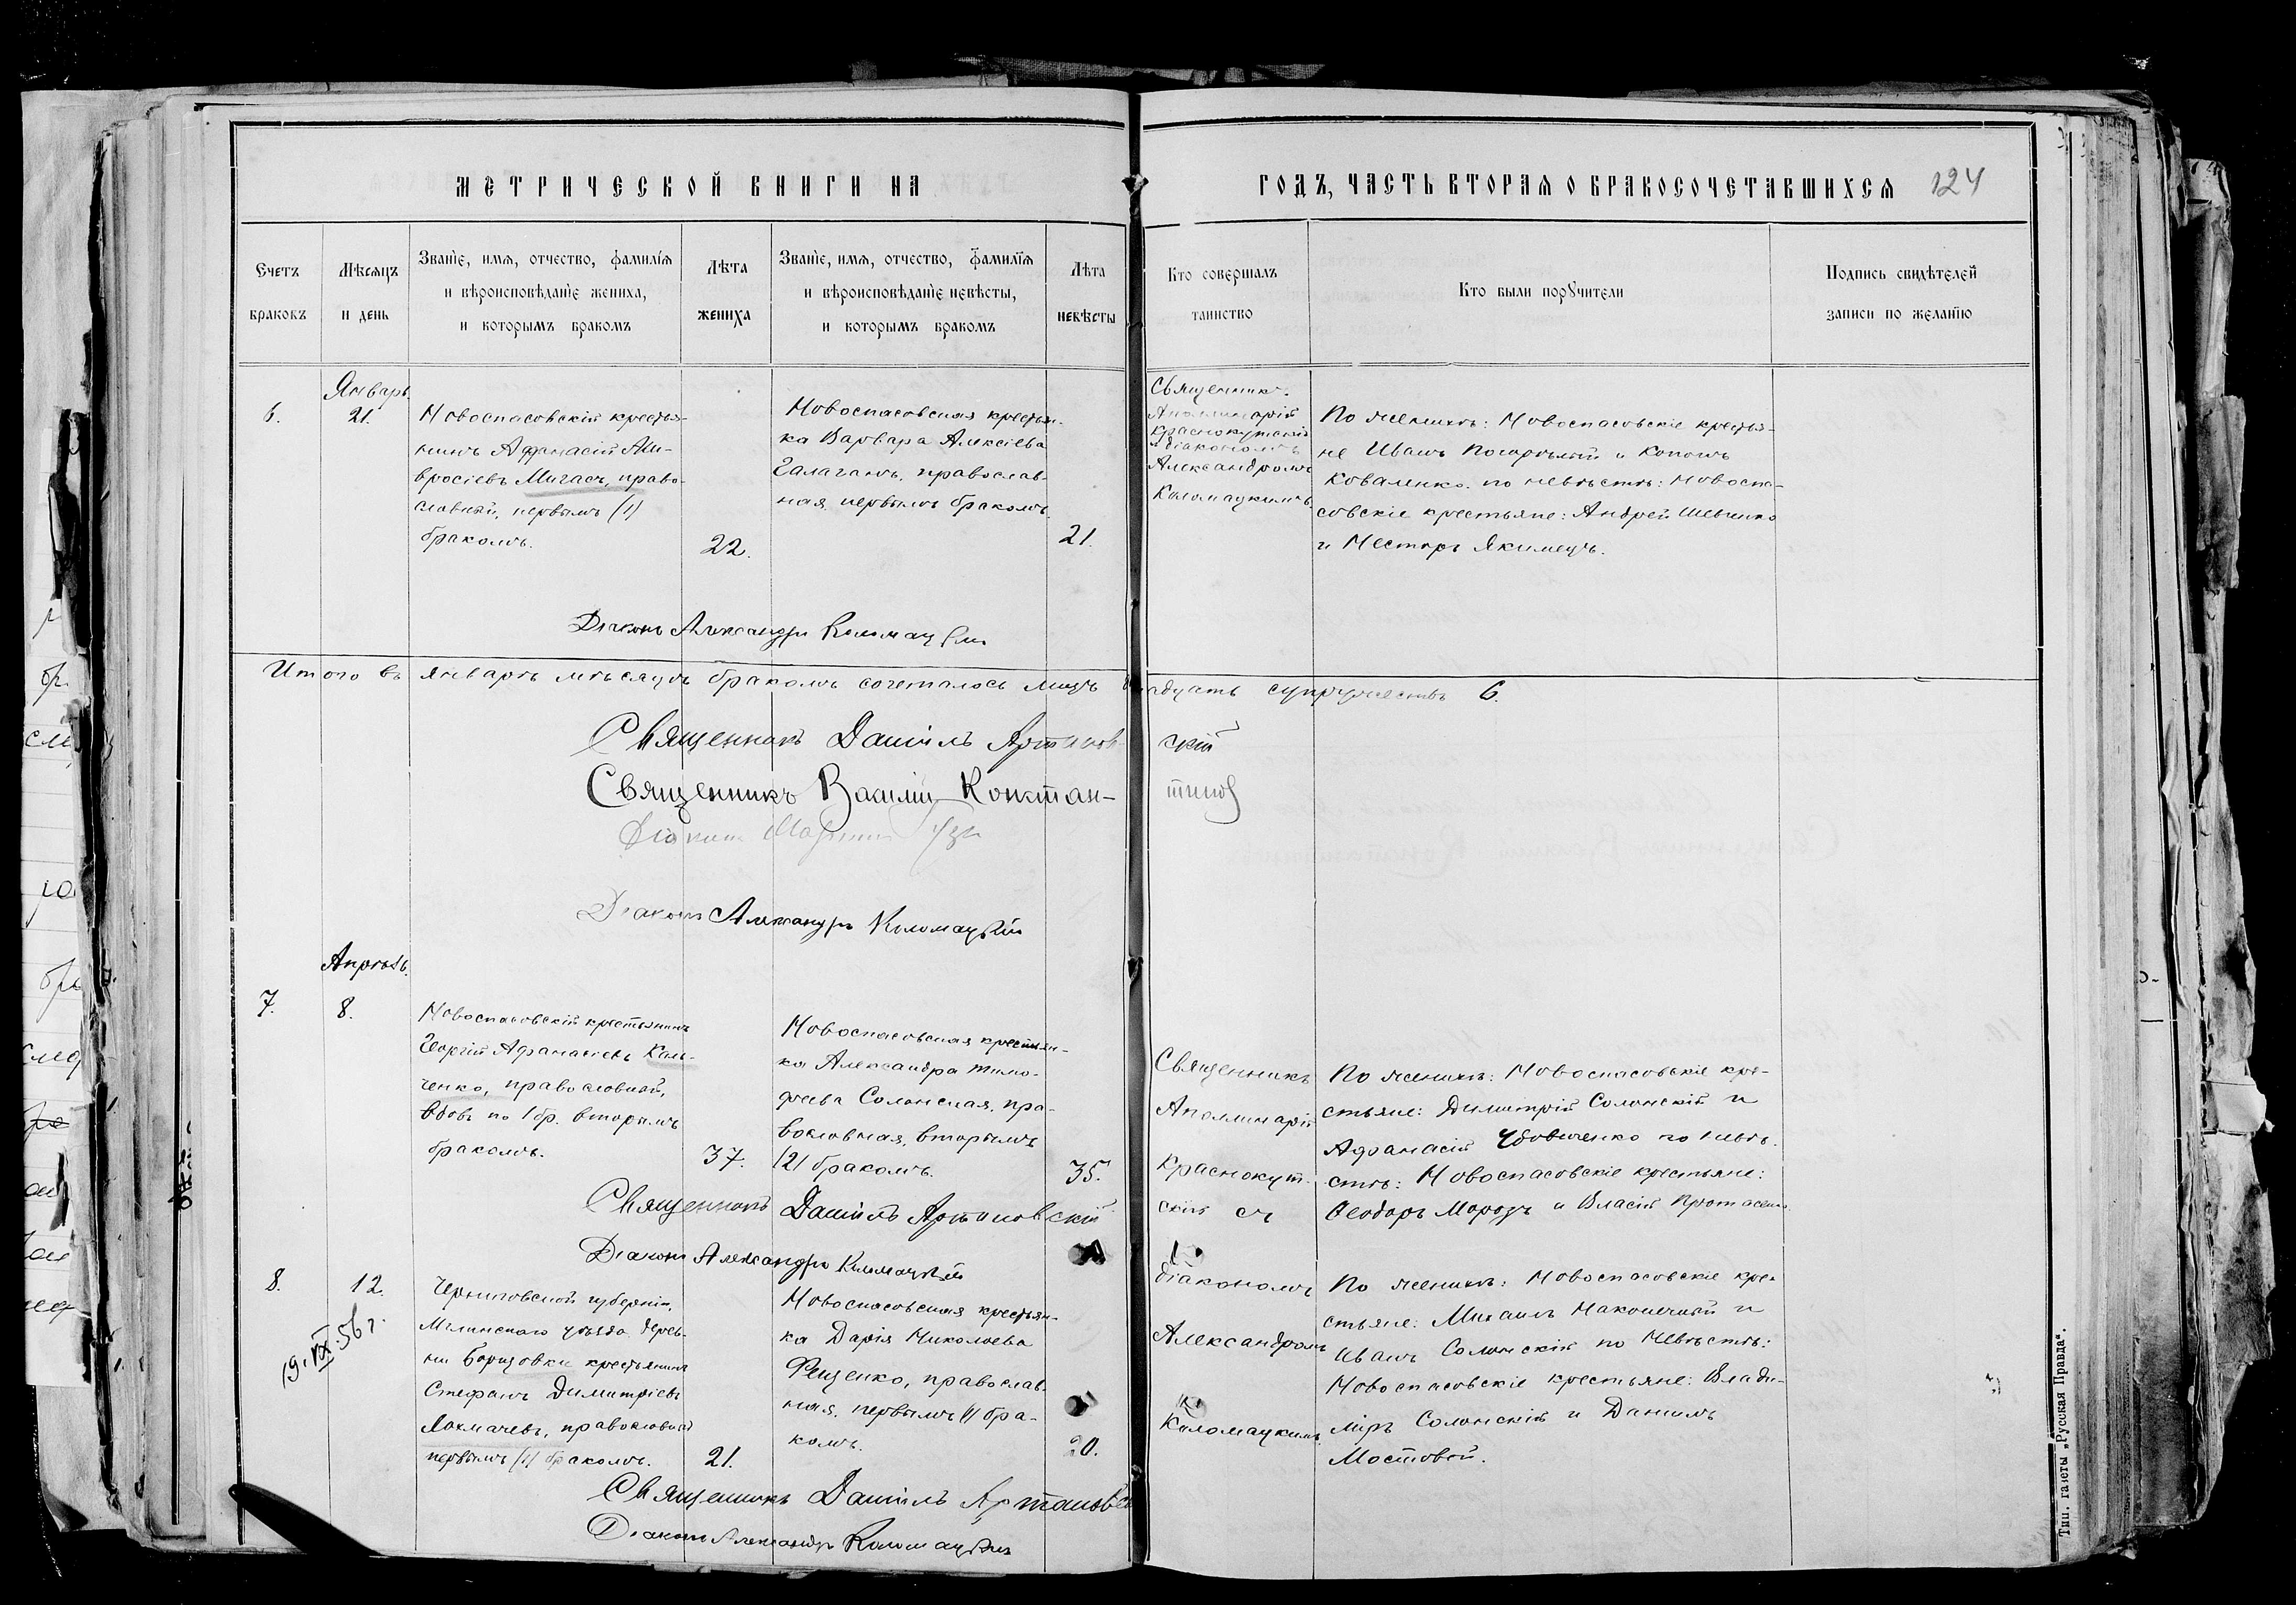 МЕТРИЧЕСКОЙ КНИГИ НА
ГОДЪ, ЧАСТЬ ВТОРАЯ О БРАКОСОЧЕТАВШИХСЯ 124
Счетъ
браковъ
Мѣсяцъ
и день
Званіе, имя, отчество, фамилія
и вѣроисповѣданіе жениха,
и которымъ бракомъ
Лѣта
жениха
Званіе, имя, отчество, фамилія
и вѣроисповѣданіе невѣсты,
и которымъ бракомъ
Лѣта
невѣсты
Кто совершалъ
таинство
Кто были поручители
Подпись свидѣтелей
записи по желанію
6.
Январь
21.
Новоспасовскій крестья-
нинъ Афанасій Ам-
вросіевъ Мигасъ, право-
славный, первымъ (1)
бракомъ.
22.
Новоспасовская крестьян-
ка Варвара Алексіева
Галаганъ, православ-
ная, первымъ бракомъ.
21.
Священникъ
Аполлинарій
Краснокутскій
съ діакономъ
Александромъ
Коломацкимъ
По женихѣ: Новоспасовскіе крестья-
не Иванъ и Кононъ
Коваленко. по невѣстѣ: Новоспа-
совскіе крестьяне: Андрей Шевченко
и Несторъ Якимецъ.
Діаконъ Александръ Коломацкій
Итого въ январѣ мѣсяцѣ бракомъ сочеталось лицъ двѣнадцать супружествъ 6.
Священникъ Даніилъ Артановскій
Священникъ Василій Константинов
Діаконъ
Діаконъ Александръ Коломацкій
Апрѣль.
7.
8.
Новоспасовскій крестьянинъ
Георгій Афанасіевъ Каль-
ченко, православный,
вдовъ по 1 бр. вторымъ
бракомъ.
37.
Новоспасовская крестьян-
ка Александра Тимо-
феева Солонская, пра-
вославная, вторымъ
(2) бракомъ.
35.
Священникъ
Аполлинарій
Краснокут-
скій съ
діакономъ
Александромъ
Коломацкимъ
По женихѣ: Новоспасовскіе кре-
стьяне: Димитрій Солонскій и
Афанасій Удовиченко по невѣ-
стѣ: Новоспасовскіе крестьяне:
Ѳеодоръ Морозъ и Власій Протасенко
Священникъ Даніилъ Артановскій
Діаконъ Александръ Коломацкій
8.
12.
19.IX.56 г.
Черниговской губерніи,
Мглинскаго уѣзда, дерев-
ни Борщовки крестьянинъ
Стефанъ Димитріевъ
Лохмачевъ, православный
первымъ (1) бракомъ.
21.
Новоспасовская крестьян-
ка Дарія Николаева
Фещенко, православ-
ная, первымъ (1) бра-
комъ.
20.
По женихѣ: Новоспасовскіе кре-
стьяне: Михаилъ Наконечный и
Иванъ Солонскій по невѣстѣ:
Новоспасовскіе крестьяне: Влади-
міръ Солонскій и Даніилъ
Мостовой.
Священникъ Даніилъ Артановскій
Діаконъ Александръ Коломацкій
Тип. газеты „Русская Правда“.